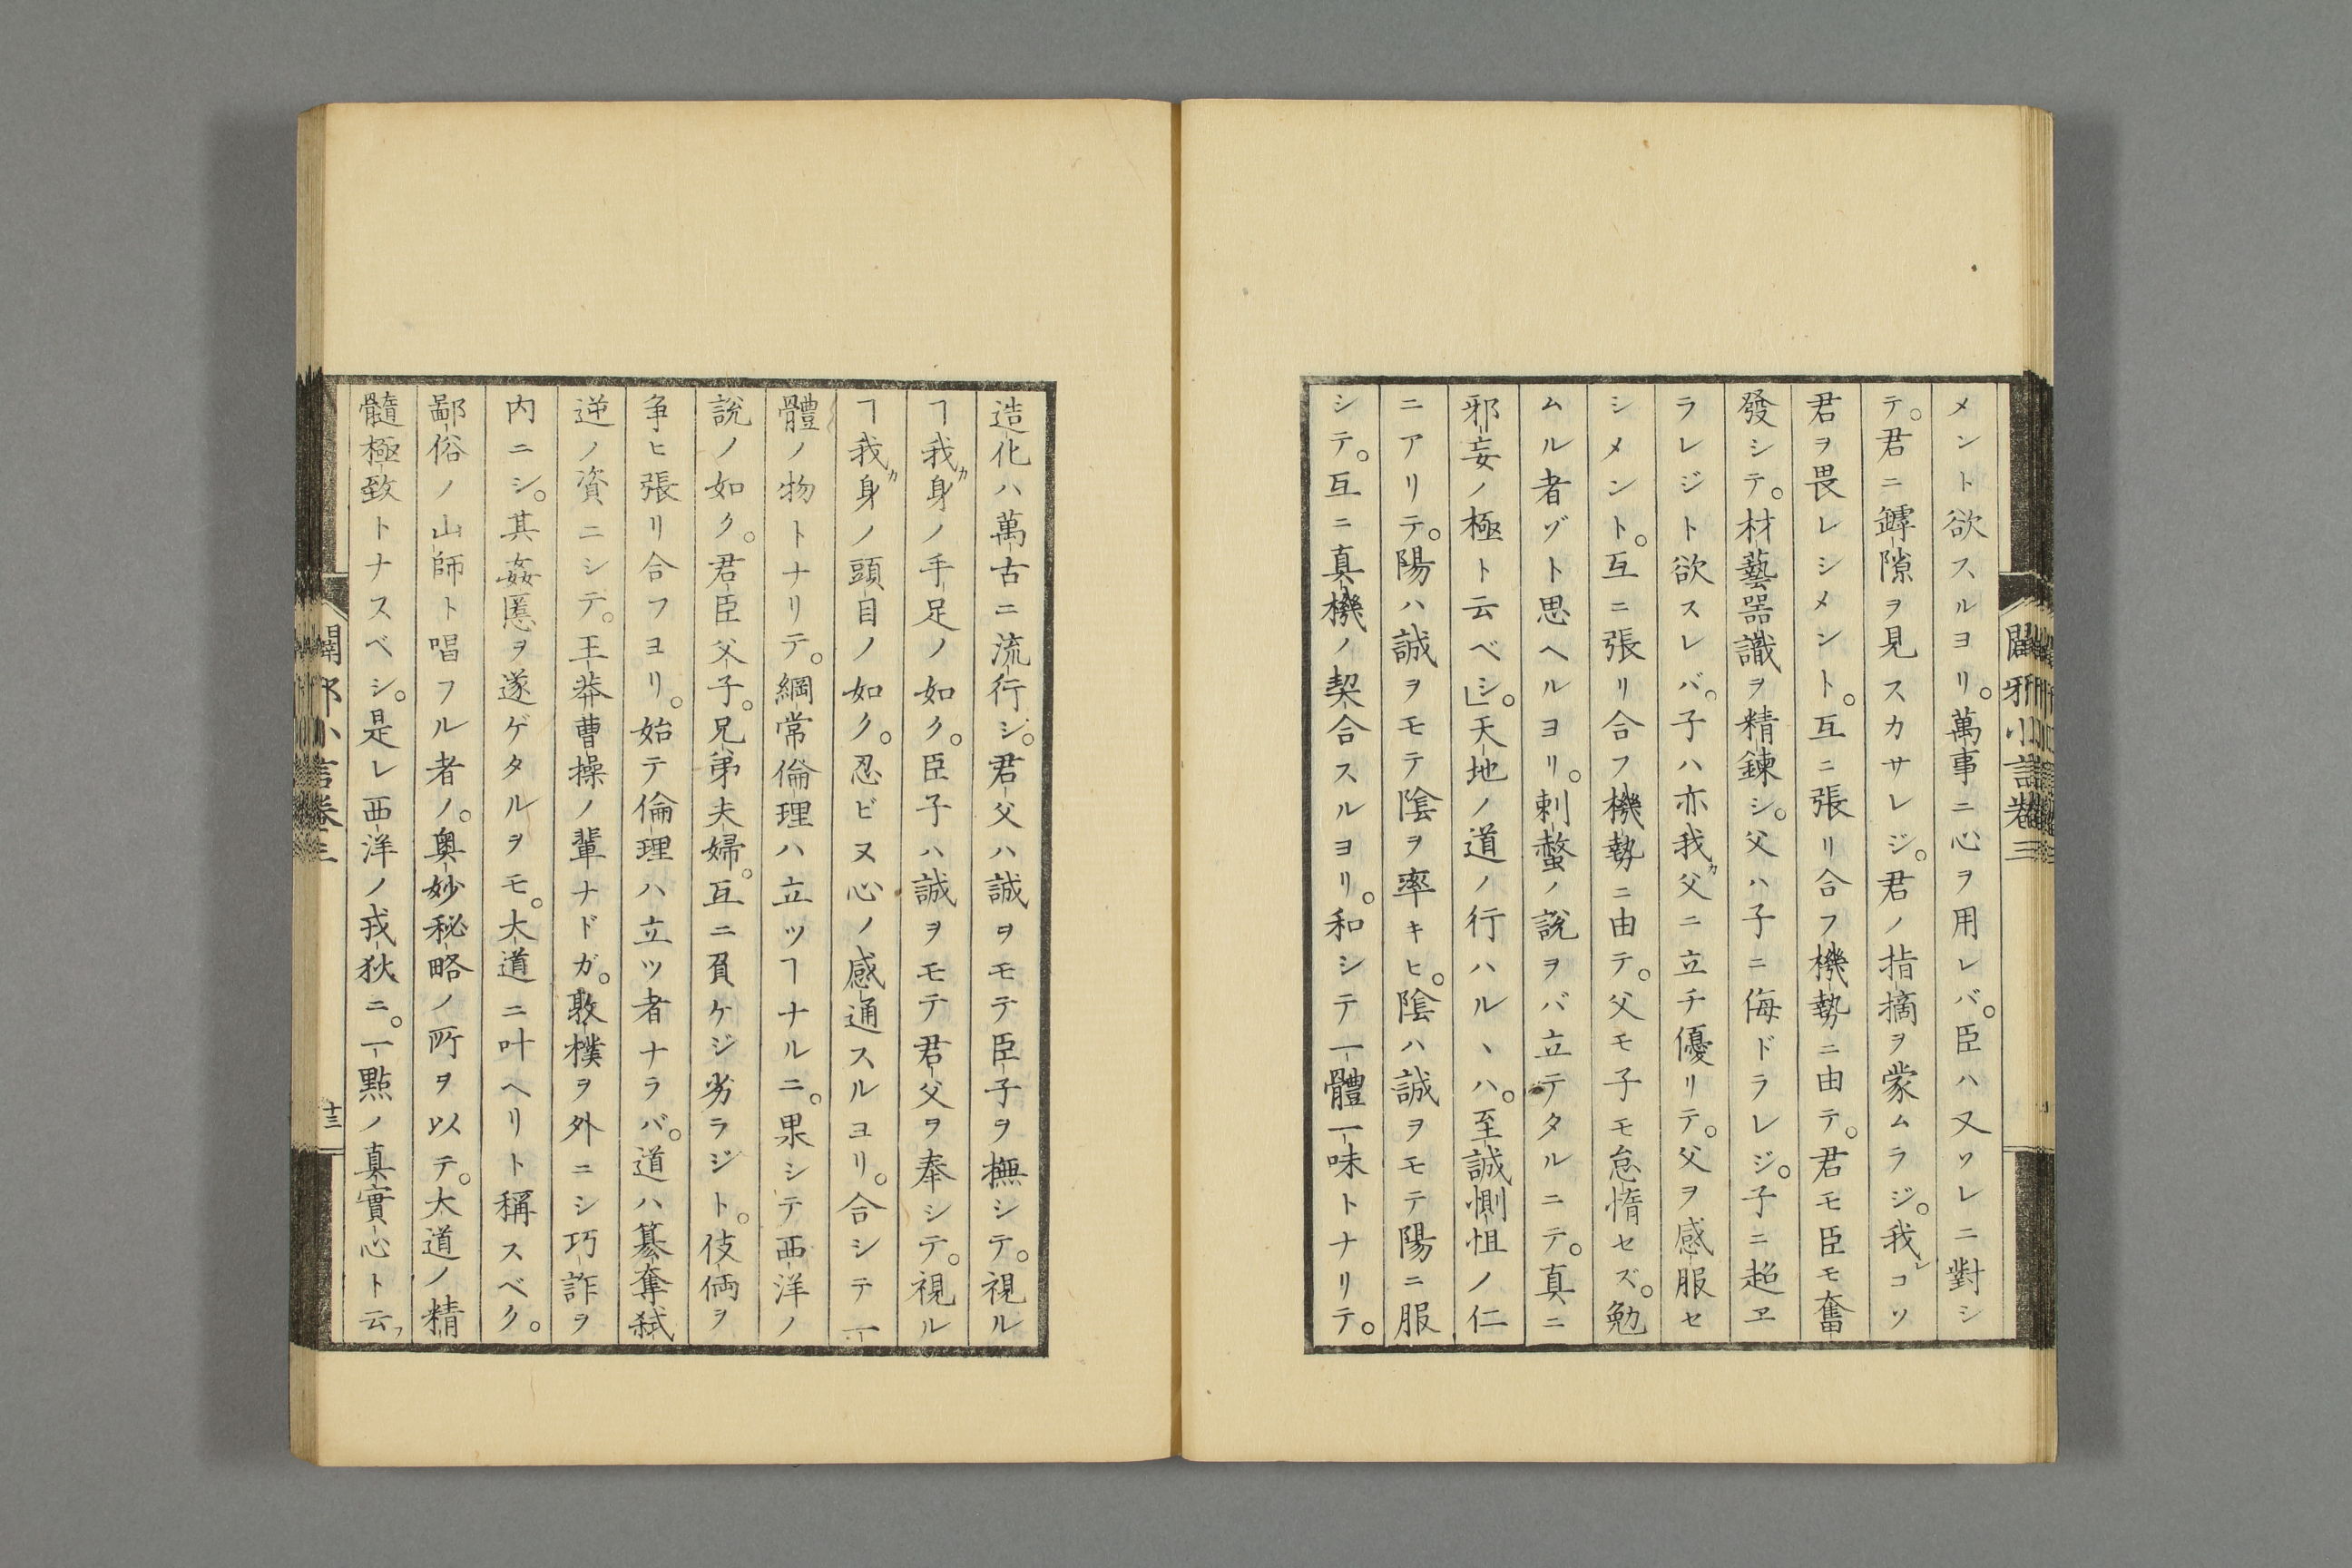 メント欲スルヨリ。萬事ニ心ヲ用レバ。臣ハ又ソレニ對シ
テ。君ニ罅隙ヲ見スカサレジ。君ノ指摘ヲ蒙ムラジ。我レコソ
君ヲ畏レシメント。互ニ張リ合フ機勢ニ由テ。君モ臣モ奮
發シテ。材藝器識ヲ精鍊シ。父ハ子ニ侮ドラレジ。子ニ超ヱ
ラレジト欲スレバ。子ハ亦我ガ父ニ立チ優リテ。父ヲ感服セ
シメント。互ニ張リ合フ機勢ニ由テ。父モ子モ怠惰セズ。勉
ムル者ゾト思ヘルヨリ。剌螫ノ說ヲバ立テタルニテ。真ニ
邪妄ノ極ト云ベシ」。天地ノ道ノ行ハルヽハ。至誠惻怛ノ仁
ニアリテ。陽ハ誠ヲモテ陰ヲ率キヒ。陰ハ誠ヲモテ陽ニ服
シテ。互ニ真機ノ契合スルヨリ。和シテ一體一味トナリテ。
闢邪小言卷三
造化ハ萬古ニ流行シ。君父ハ誠ヲモテ臣子ヲ撫シテ。視ル
ヿ我ガ身ノ手足ノ如ク。臣子ハ誠ヲモテ君父ヲ奉シテ。視ル
ヿ我ガ身ノ頭目ノ如ク。忍ビヌ心ノ感通スルヨリ。合シテ一
體ノ物トナリテ。綱常倫理ハ立ツヿナルニ。果シテ西洋ノ
說ノ如ク。君臣父子。兄弟夫婦。互ニ負ケジ劣ラジト。伎倆ヲ
争ヒ張リ合フヨリ。始テ倫理ハ立ツ者ナラバ。道ハ簒奪弑
逆ノ資ニシテ。王莽曹操ノ輩ナドガ。敦樸ヲ外ニシ巧詐ヲ
内ニシ。其姦慝ヲ遂ゲタルヲモ。大道ニ叶ヘリト稱スベク。
鄙俗ノ山師ト唱フル者ノ。奥妙秘略ノ所ヲ以テ。大道ノ精
髓極致トナスベシ。是レ西洋ノ戎狄ニ。一點ノ真實心ト云フ
闢邪小言卷三
十三